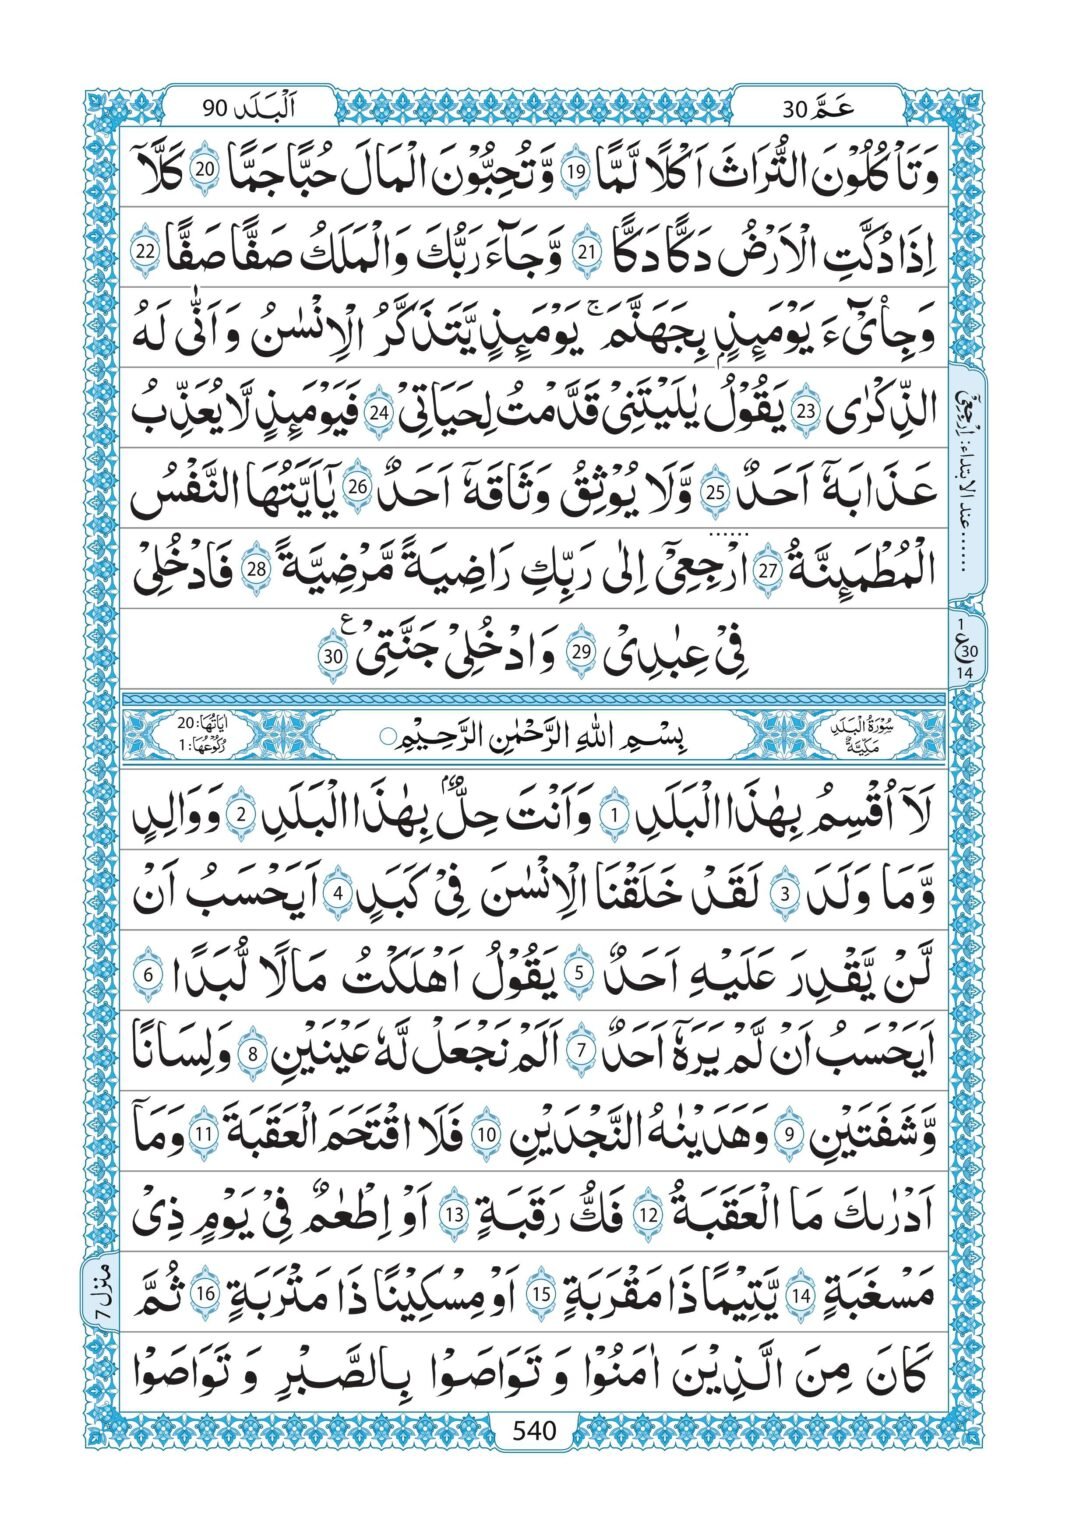 عَمَّ 30
اَلْبَلَد 90
وَتَاْكُلُوْنَ التُّرَاثَ اَكْلًا لَّمًّا 19 وَّتُحِبُّوْنَ الْمَالَ حُبًّا جَمًّا 20 كَلَّاۤ
اِذَا دُكَّتِ الْاَرْضُ دَكًّا دَكًّا 21 وَّجَآءَ رَبُّكَ وَالْمَلَكُ صَفًّا صَفًّا 22
وَجِايْٓءَ يَوْمَئِذٍۭ بِجَهَنَّمَ ۚ يَوْمَئِذٍ يَّتَذَكَّرُ الْاِنْسٰنُ وَاَنّٰى لَهُ
الذِّكْرٰى 23 يَقُوْلُ يٰلَيْتَنِىْ قَدَّمْتُ لِحَيَاتِىْ 24 فَيَوْمَئِذٍ لَّا يُعَذِّبُ
عَذَابَهٗۤ اَحَدٌ 25 وَّلَا يُوْثِقُ وَثَاقَهٗۤ اَحَدٌ 26 يٰۤاَيَّتُهَا النَّفْسُ
الْمُطْمَئِنَّةُ 27 ارْجِعِىْۤ اِلٰى رَبِّكِ رَاضِيَةً مَّرْضِيَّةً 28 فَادْخُلِىْ
فِىْ عِبٰدِىْ 29 وَادْخُلِىْ جَنَّتِىْ ع 30
...... عند الابتداء: اِرْجِعِىْۤ
1
ع 30
14
سُوْرَةُ الْبَلَدِ
مَكِّيَّةٌ
بِسْمِ اللّٰهِ الرَّحْمٰنِ الرَّحِيْمِ ○
اٰيَاتُهَا: 20
رُكُوْعُهَا: 1
لَاۤ اُقْسِمُ بِهٰذَا الْبَلَدِ 1 وَاَنْتَ حِلٌّۢ بِهٰذَا الْبَلَدِ 2 وَوَالِدٍ
وَّمَا وَلَدَ 3 لَقَدْ خَلَقْنَا الْاِنْسٰنَ فِىْ كَبَدٍ 4 اَيَحْسَبُ اَنْ
لَّنْ يَّقْدِرَ عَلَيْهِ اَحَدٌ 5 يَقُوْلُ اَهْلَكْتُ مَالًا لُّبَدًا 6
اَيَحْسَبُ اَنْ لَّمْ يَرَهٗۤ اَحَدٌ 7 اَلَمْ نَجْعَلْ لَّهٗ عَيْنَيْنِ 8 وَلِسَانًا
وَّشَفَتَيْنِ 9 وَهَدَيْنٰهُ النَّجْدَيْنِ 10 فَلَا اقْتَحَمَ الْعَقَبَةَ 11 وَمَاۤ
اَدْرٰىكَ مَا الْعَقَبَةُ 12 فَكُّ رَقَبَةٍ 13 اَوْ اِطْعٰمٌ فِىْ يَوْمٍ ذِىْ
مَسْغَبَةٍ 14 يَّتِيْمًا ذَا مَقْرَبَةٍ 15 اَوْ مِسْكِيْنًا ذَا مَتْرَبَةٍ 16 ثُمَّ
كَانَ مِنَ الَّذِيْنَ اٰمَنُوْا وَتَوَاصَوْا بِالصَّبْرِ وَتَوَاصَوْا
منزل 7
540